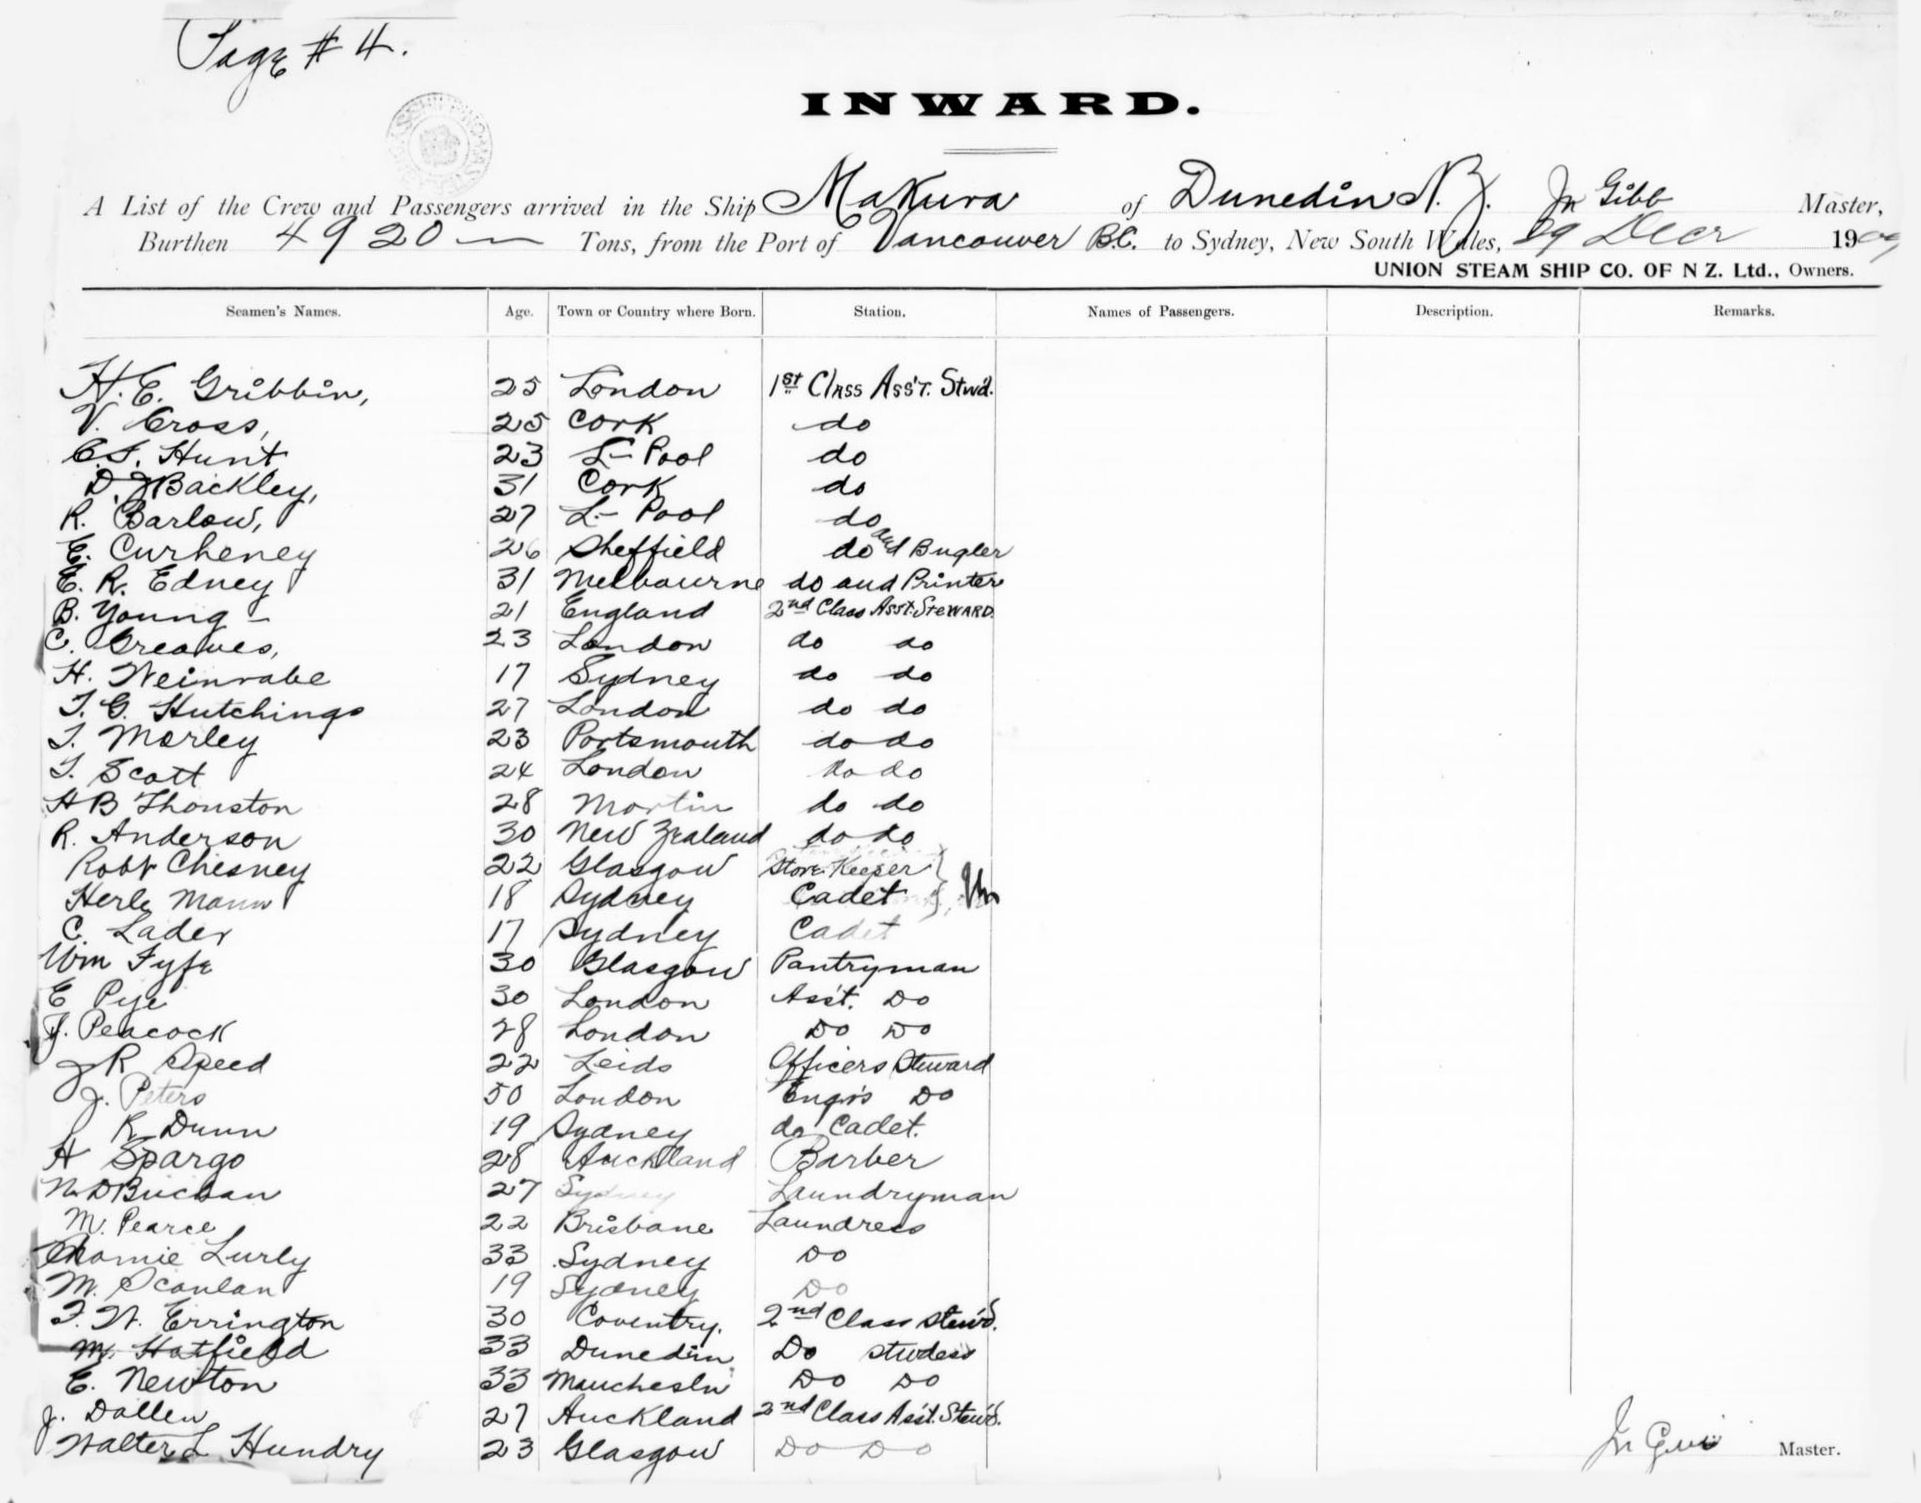 Page # 4.
INWARD.
A List of the Crew and Passengers arrived in the Ship Makura of Dunedin N.Z. Jn Gibb Master,
Burthen 4920 Tons, from the Port of Vancouver B.C. to Sydney, New South Wales, 29 Decr 1909
UNION STEAM SHIP CO. OF N Z. Ltd., Owners.
Seamen's Names. Age. Town or Country where Born. Station. Names of Passengers. Description. Remarks.
H. E. Gribbin, 25 London 1st Class Ass't. Stwd.
V. Cross, 25 Cork do
C.F. Hunt 23 L- Pool do
D. J Backley, 31 Cork do
R. Barlow, 27 L- Pool do
E. Curheney 26 Sheffield do and Bugler
E. R. Edney 31 Melbourne do and Printer
B. Young - 21 England 2nd Class Asst. Steward.
C. Greaves, 23 London do do
H. Weinrabe 17 Sydney do do
T. G. Hutchings 27 London do do
T. Morley 23 Portsmouth do do
T. Scott 24 London do do
H B Thonston 28 Martin do do
R. Anderson 30 New Zealand do do
Robt Chesney 22 Glasgow Store Keeper
Herle Mann 18 Sydney Cadet
C. Lader 17 Sydney Cadet
Wm Fyfe 30 Glasgow Pantryman
E Pye 30 London Ass't. Do
J. Peacock 28 London Do Do
J R Speed 22 Leids Officers Steward
J. Peters 50 London Engrs Do
R Dunn 19 Sydney do Cadet.
H Spargo 28 Auckland Barber
N. D Buchan 27 Sydney Laundryman
M. Pearce 22 Brisbane Laundress
Lurly 33 Sydney Do
M. Scanlan 19 Sydney Do
F. W. Errington 30 Coventry. 2nd Class Stew'd.
M. Hatfield 33 Dunedin Do studess
E. Newton 33 Manchester Do Do
J. Dallen 27 Auckland 2nd Class Ass't. Stew'd.
Walter L Hundry 23 Glasgow Do Do
Master.